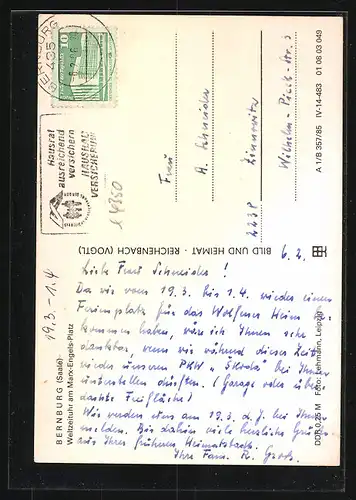 BERNBURG
435
10
Hausrat
ausreichend
versichern
HAUSHALT-
VERSICHERUNG
14350
Frau
A. Schneider
2238 Zinnowitz
Wilhelm-Pieck-Str. 3
A 1/B 357/85 IV-14-483 01 08 03 049
BILD UND HEIMAT · REICHENBACH (VOGTL)
6.2.
19.3. - 1.4
Liebe Frau Schneider!
Da wir vom 19.3. bis 1.4. wieder einen
Ferienplatz für das Wolfener Heim be-
kommen haben, wäre ich Ihnen sehr
dankbar, wenn wir während dieser Zeit
wieder unseren PKW „Skoda" bei Ihnen
unterstellen dürften. (Garage oder über-
dachte Freifläche)
Wir werden uns am 19.3. d. J. bei Ihnen
melden. Bis dahin viele herzliche Grüße
aus Ihrer früheren Heimatstadt.
Ihre Fam. R.
BERNBURG (Saale)
Weltzeituhr am Marx-Engels-Platz
DDR 0,25 M Foto: Lehmann, Leipzig